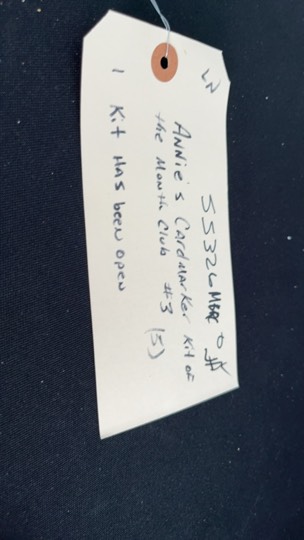 LN
55326
Annie's Cardmarker Kit of
the Month Club #3 (5)
1 Kit Has been open